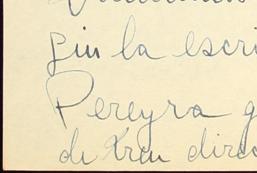 sin la escri
Pereyra g
de Xreu direc